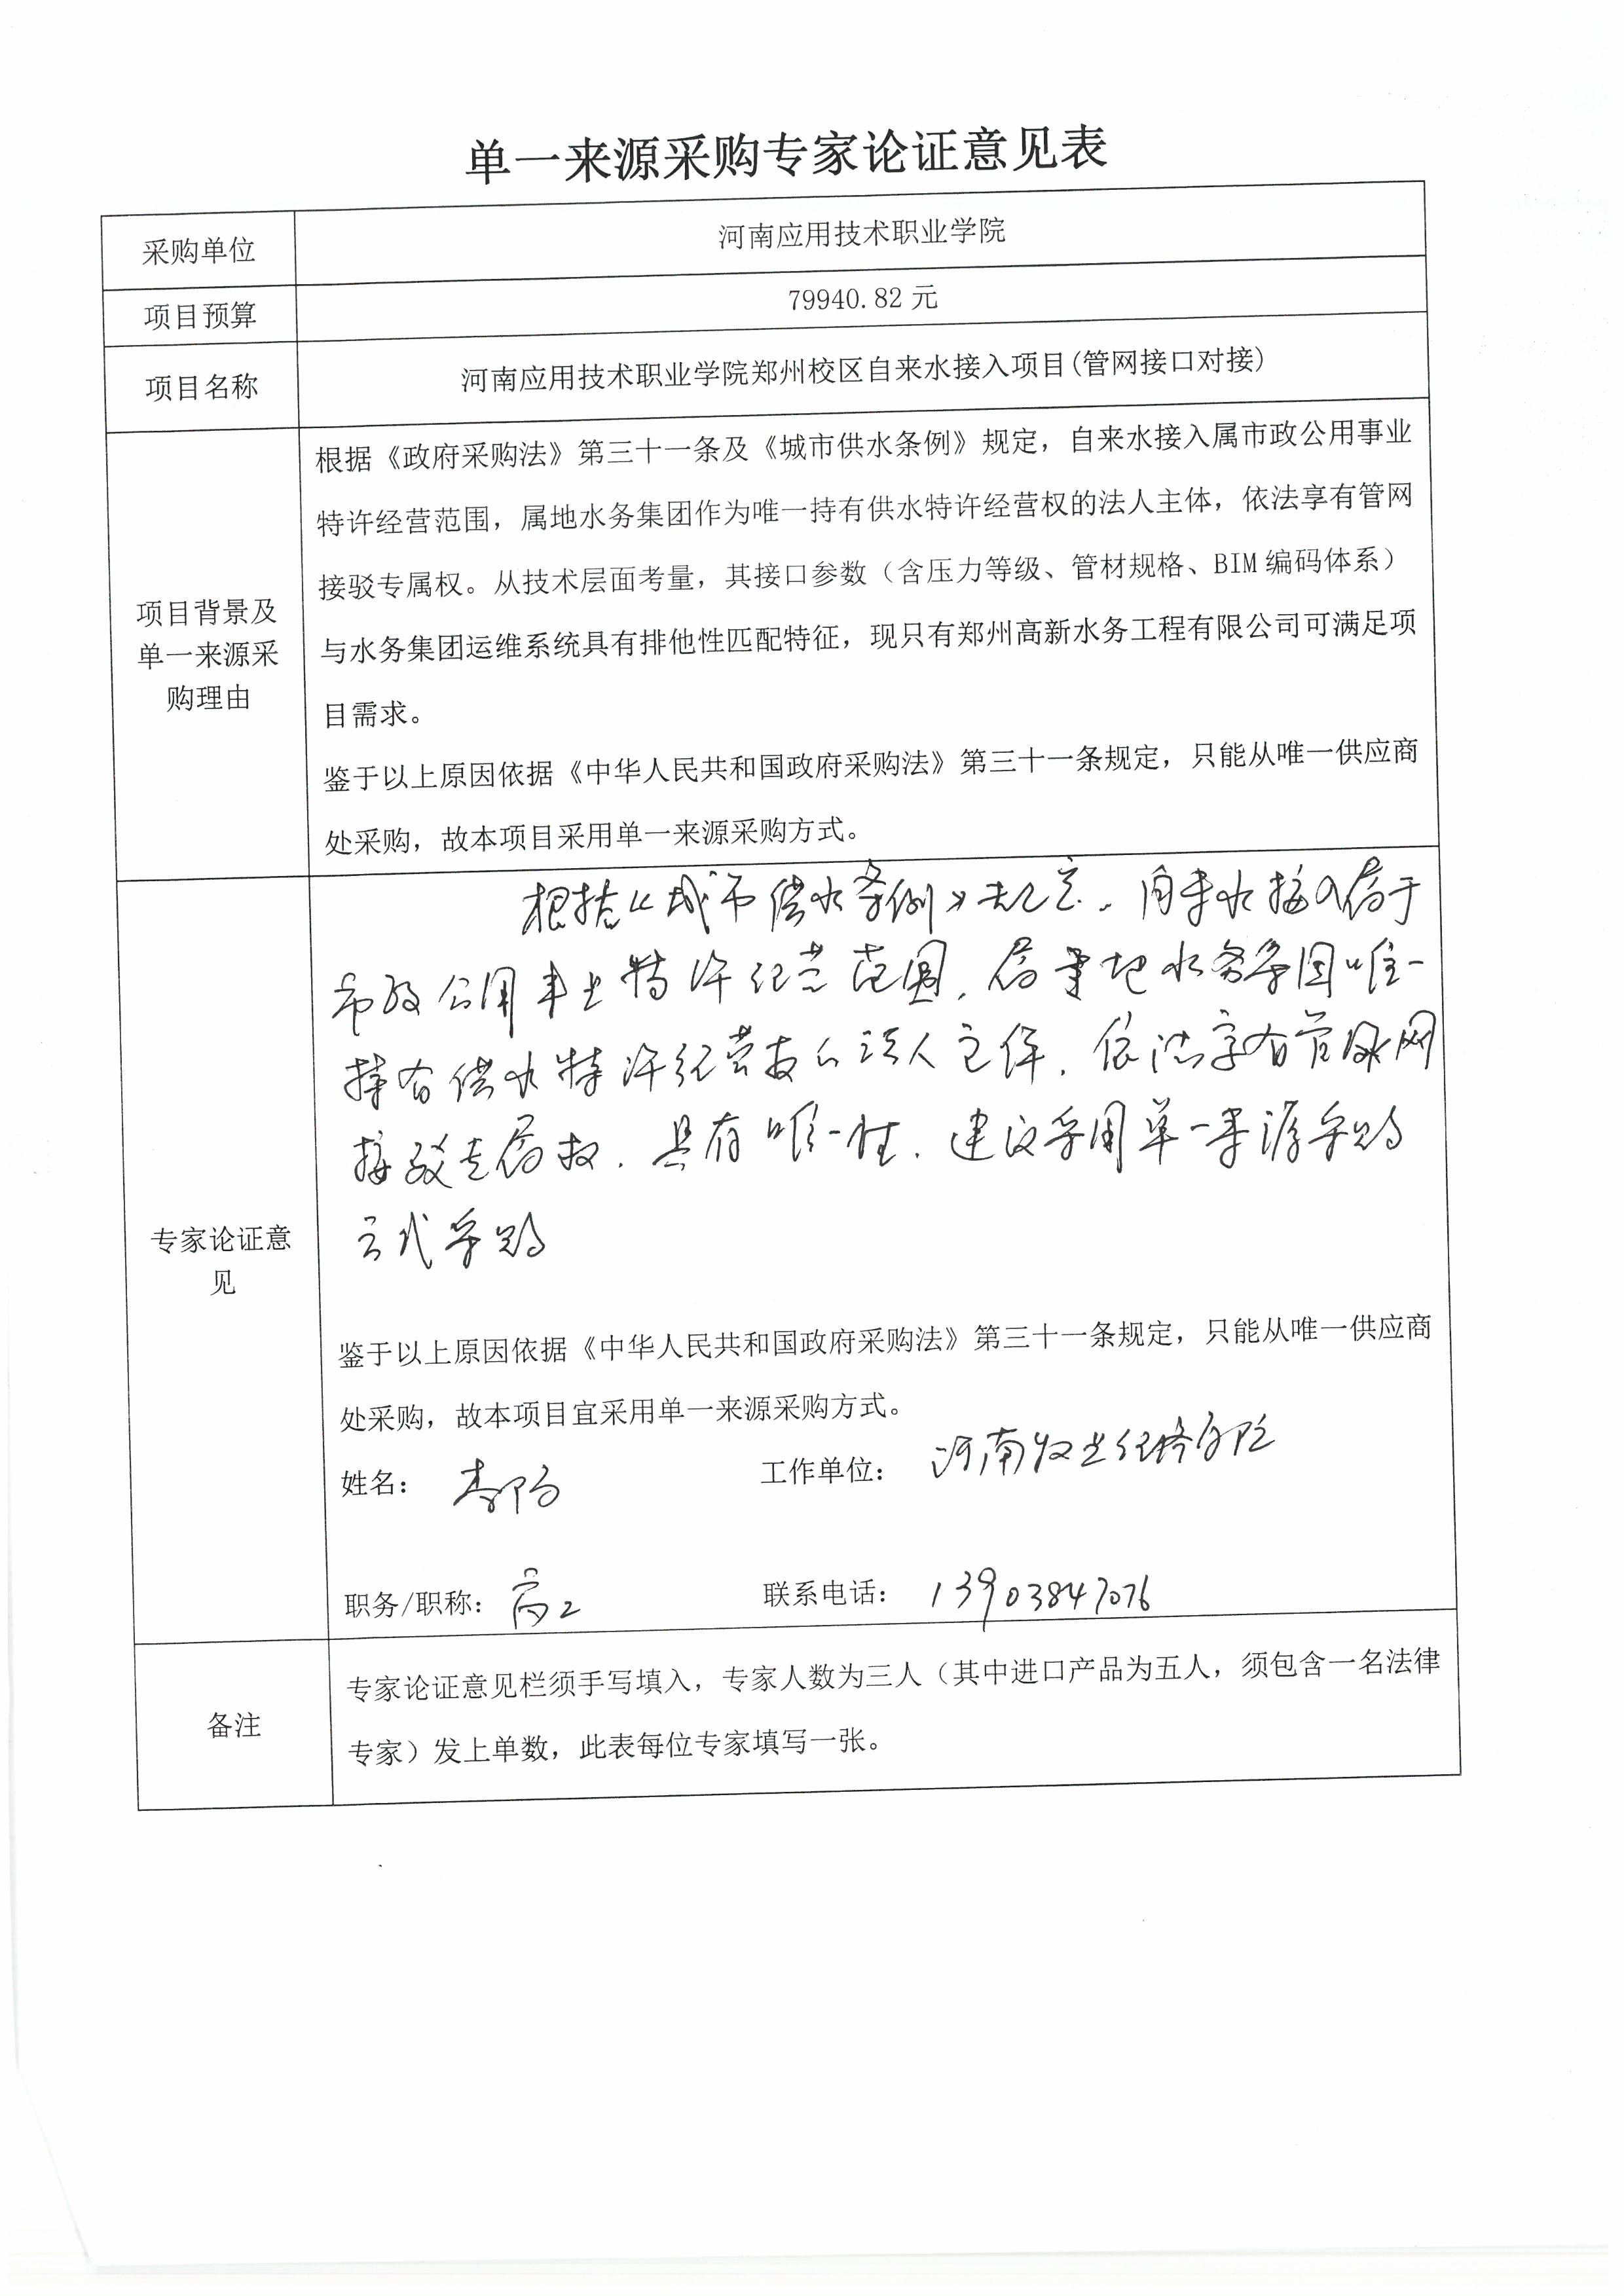 单一来源采购专家论证意见表
采购单位
河南应用技术职业学院
项目预算
79940.82 元
项目名称
河南应用技术职业学院郑州校区自来水接入项目(管网接口对接)
项目背景及
单一来源采
购理由
根据《政府采购法》第三十一条及《城市供水条例》规定，自来水接入属市政公用事业
特许经营范围，属地水务集团作为唯一持有供水特许经营权的法人主体，依法享有管网
接驳专属权。从技术层面考量，其接口参数（含压力等级、管材规格、BIM 编码体系）
与水务集团运维系统具有排他性匹配特征，现只有郑州高新水务工程有限公司可满足项
目需求。
鉴于以上原因依据《中华人民共和国政府采购法》第三十一条规定，只能从唯一供应商
处采购，故本项目采用单一来源采购方式。
专家论证意
见
根据《城市供水条例》规定，自来水接入属于
市政公用事业特许经营范围，属地水务集团唯一
持有供水特许经营权的法人主体，依法享有管网
接驳专属权，具有唯一性，建议采用单一来源采购
方式采购
鉴于以上原因依据《中华人民共和国政府采购法》第三十一条规定，只能从唯一供应商
处采购，故本项目宜采用单一来源采购方式。
姓名：
工作单位： 河南牧业经济学院
职务/职称： 高工
联系电话： 13903847076
备注
专家论证意见栏须手写填入，专家人数为三人（其中进口产品为五人，须包含一名法律
专家）发上单数，此表每位专家填写一张。